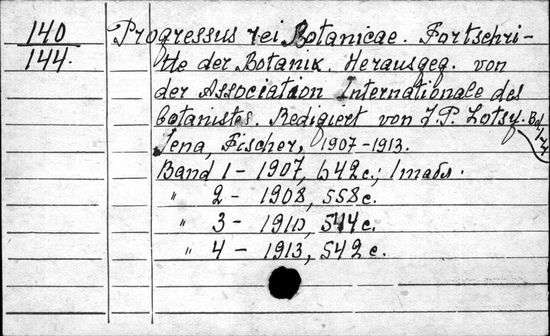 140
144.
Progressus rei Botanicae. Fortschri-
tte der Botanik. Herausgeg. von
der Association Internationale des
botanistes. Redigiert von J. P. Lotsy. Bd
Jena, Fischer, 1907-1913.
Band 1 - 1907, 642 с.; 1 табл.
" 2 - 1908, 558 с.
" 3 - 1910, 544 с.
" 4 - 1913, 542 с.